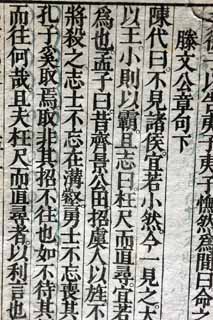 徐子以告夷子夷子憮然爲閒曰命之
滕文公章句下
陳代曰不見諸侯宜若小然今一見之大
以王小則以霸。且志曰枉尺而直尋。宜若
爲也孟子曰昔齊景公田招虞人以旌不
將殺之志士不忘在溝壑勇士不忘喪其
孔子奚取焉取非其招不往也如不待其
而往何哉且夫枉尺而直尋者以利言也